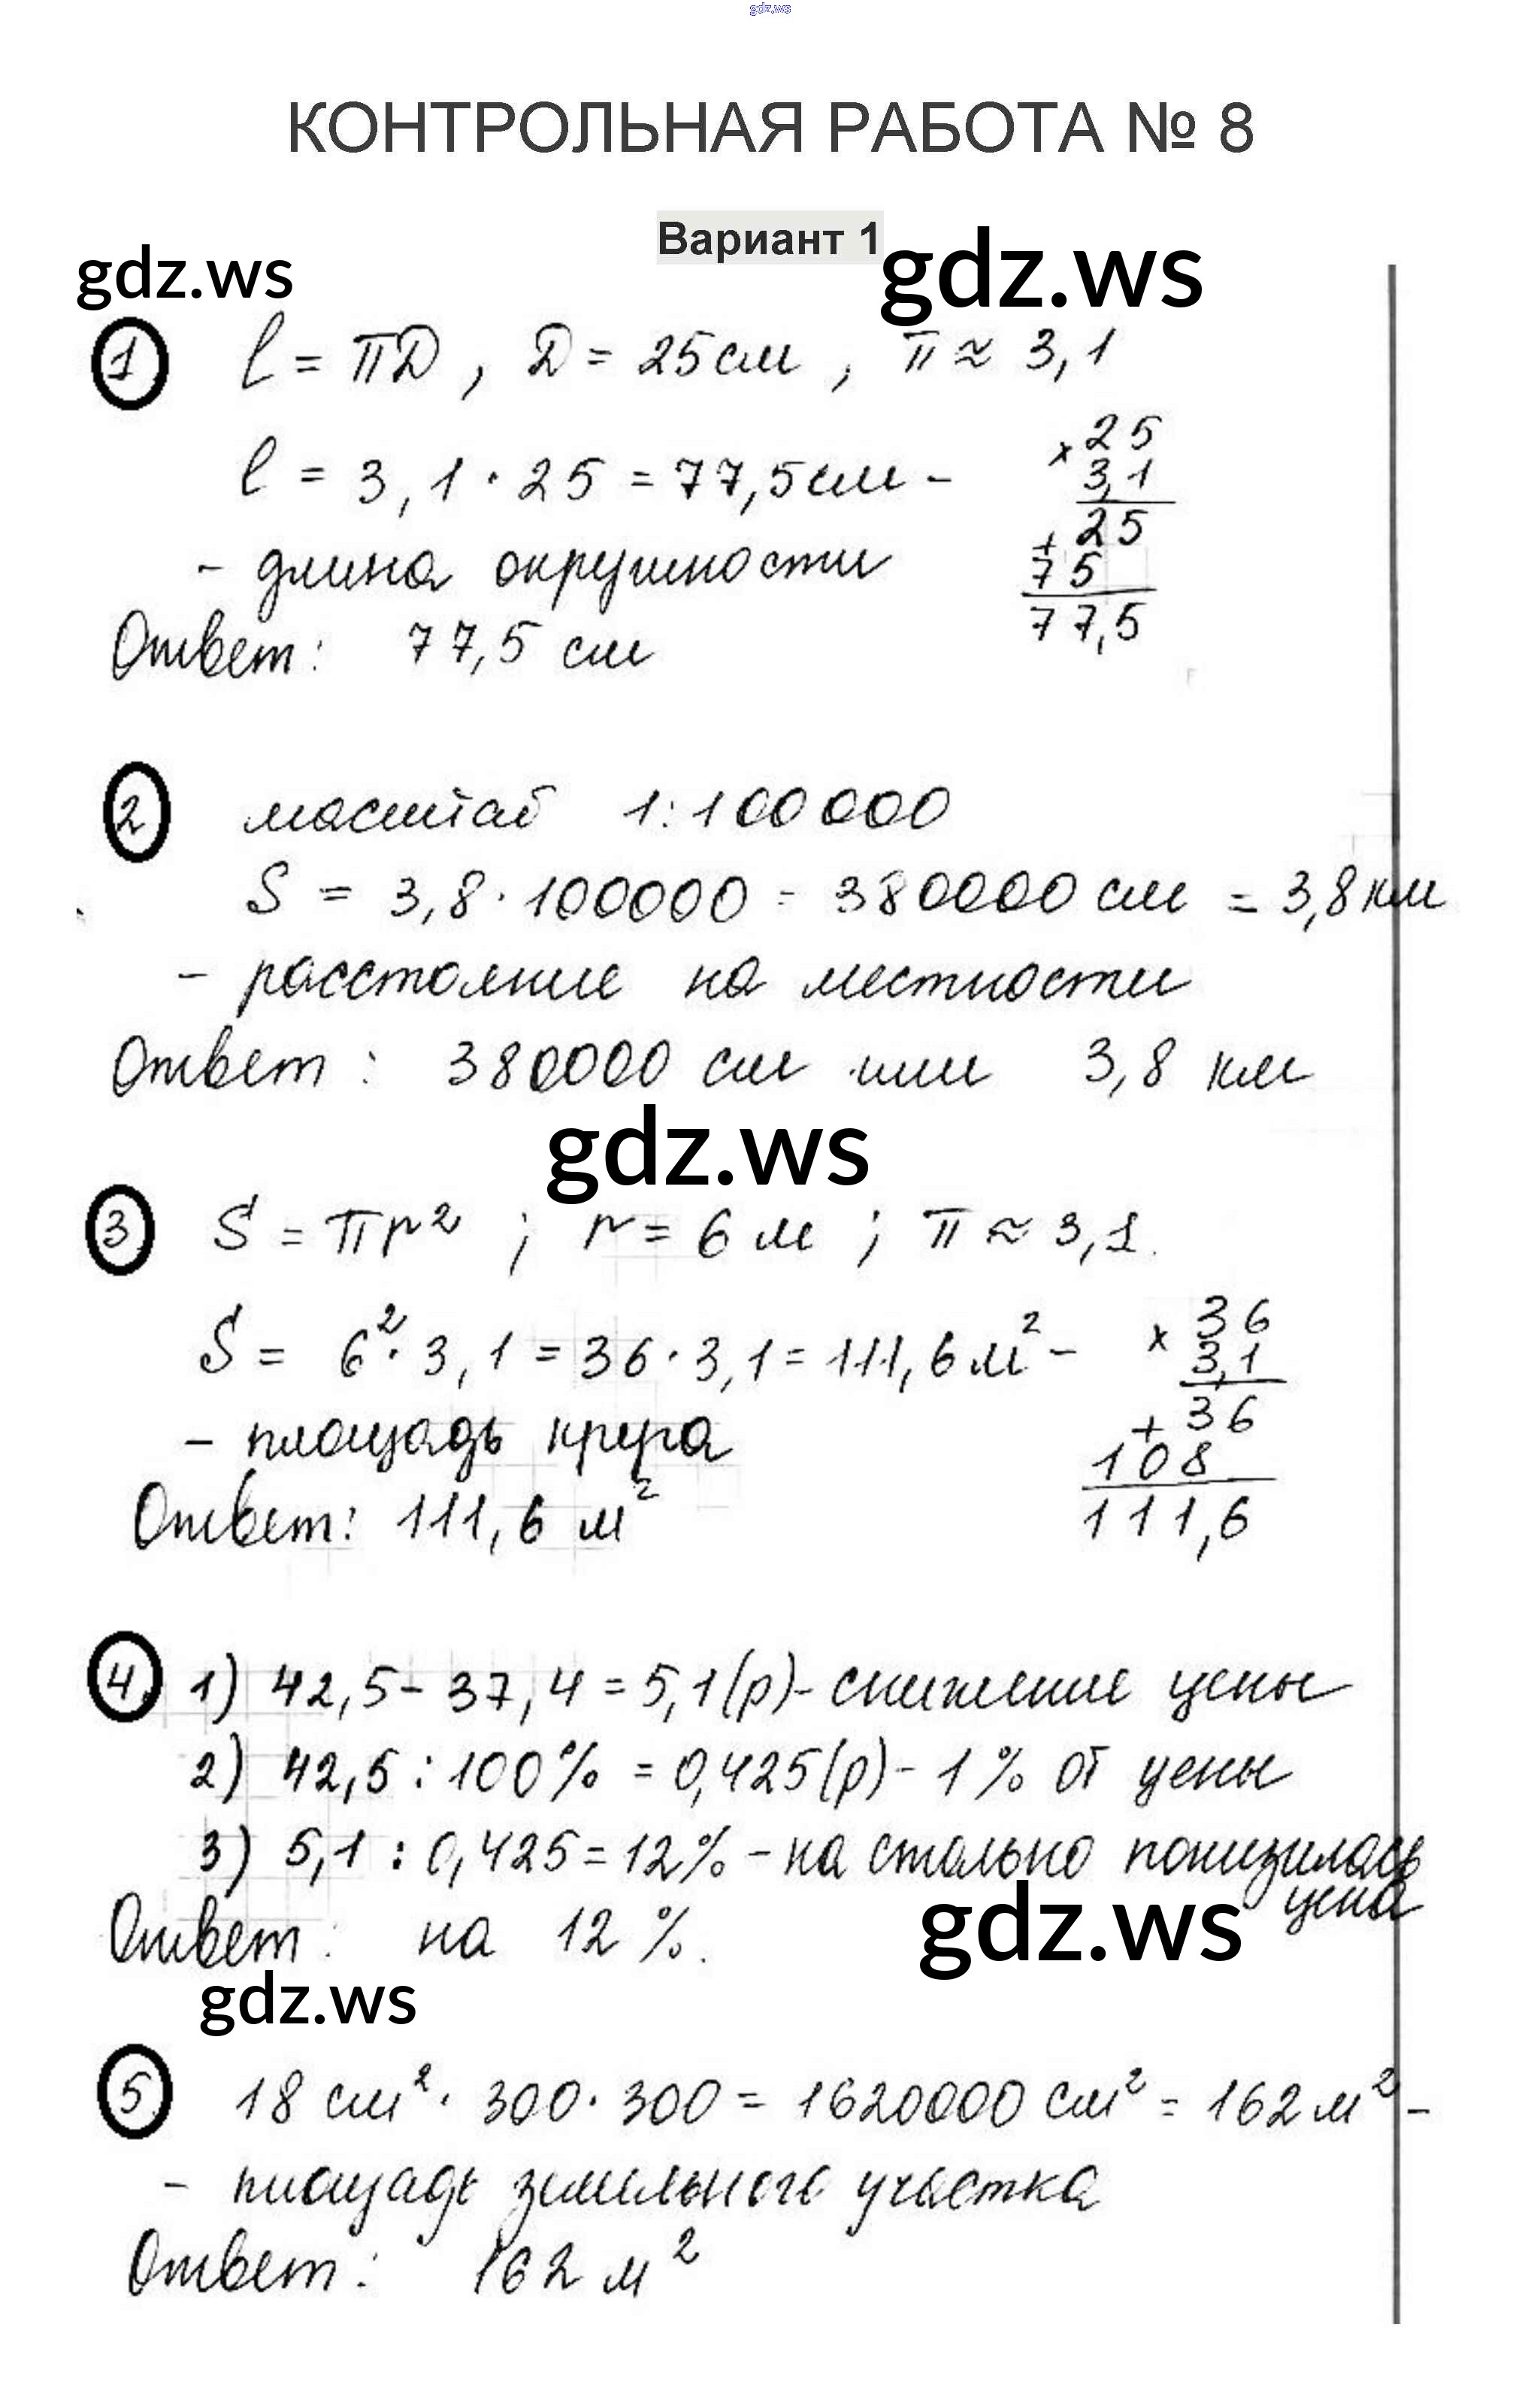 gdz.ws
КОНТРОЛЬНАЯ РАБОТА № 8
Вариант 1
gdz.ws
gdz.ws
1 l = πD, D = 25 см, π ≈ 3,1
l = 3,1 · 25 = 77,5 см -
- длина окружности
Ответ: 77,5 см
× 25
3,1
+ 25
75
77,5
2 масштаб 1:100000
S = 3,8 · 100000 = 380000 см = 3,8 км
- расстояние на местности
Ответ: 380000 см или 3,8 км
gdz.ws
3 S = πr²; r = 6 м; π ≈ 3,1.
S = 6² · 3,1 = 36 · 3,1 = 111,6 м² -
- площадь круга
Ответ: 111,6 м²
× 36
3,1
+ 36
108
111,6
4 1) 42,5 - 37,4 = 5,1 (р) - снижение цены
2) 42,5 : 100% = 0,425 (р) - 1% от цены
3) 5,1 : 0,425 = 12% - на столько понизилась
цена
Ответ: на 12%.
gdz.ws
gdz.ws
5 18 см² · 300 · 300 = 1620000 см² = 162 м² -
- площадь земельного участка
Ответ: 162 м²